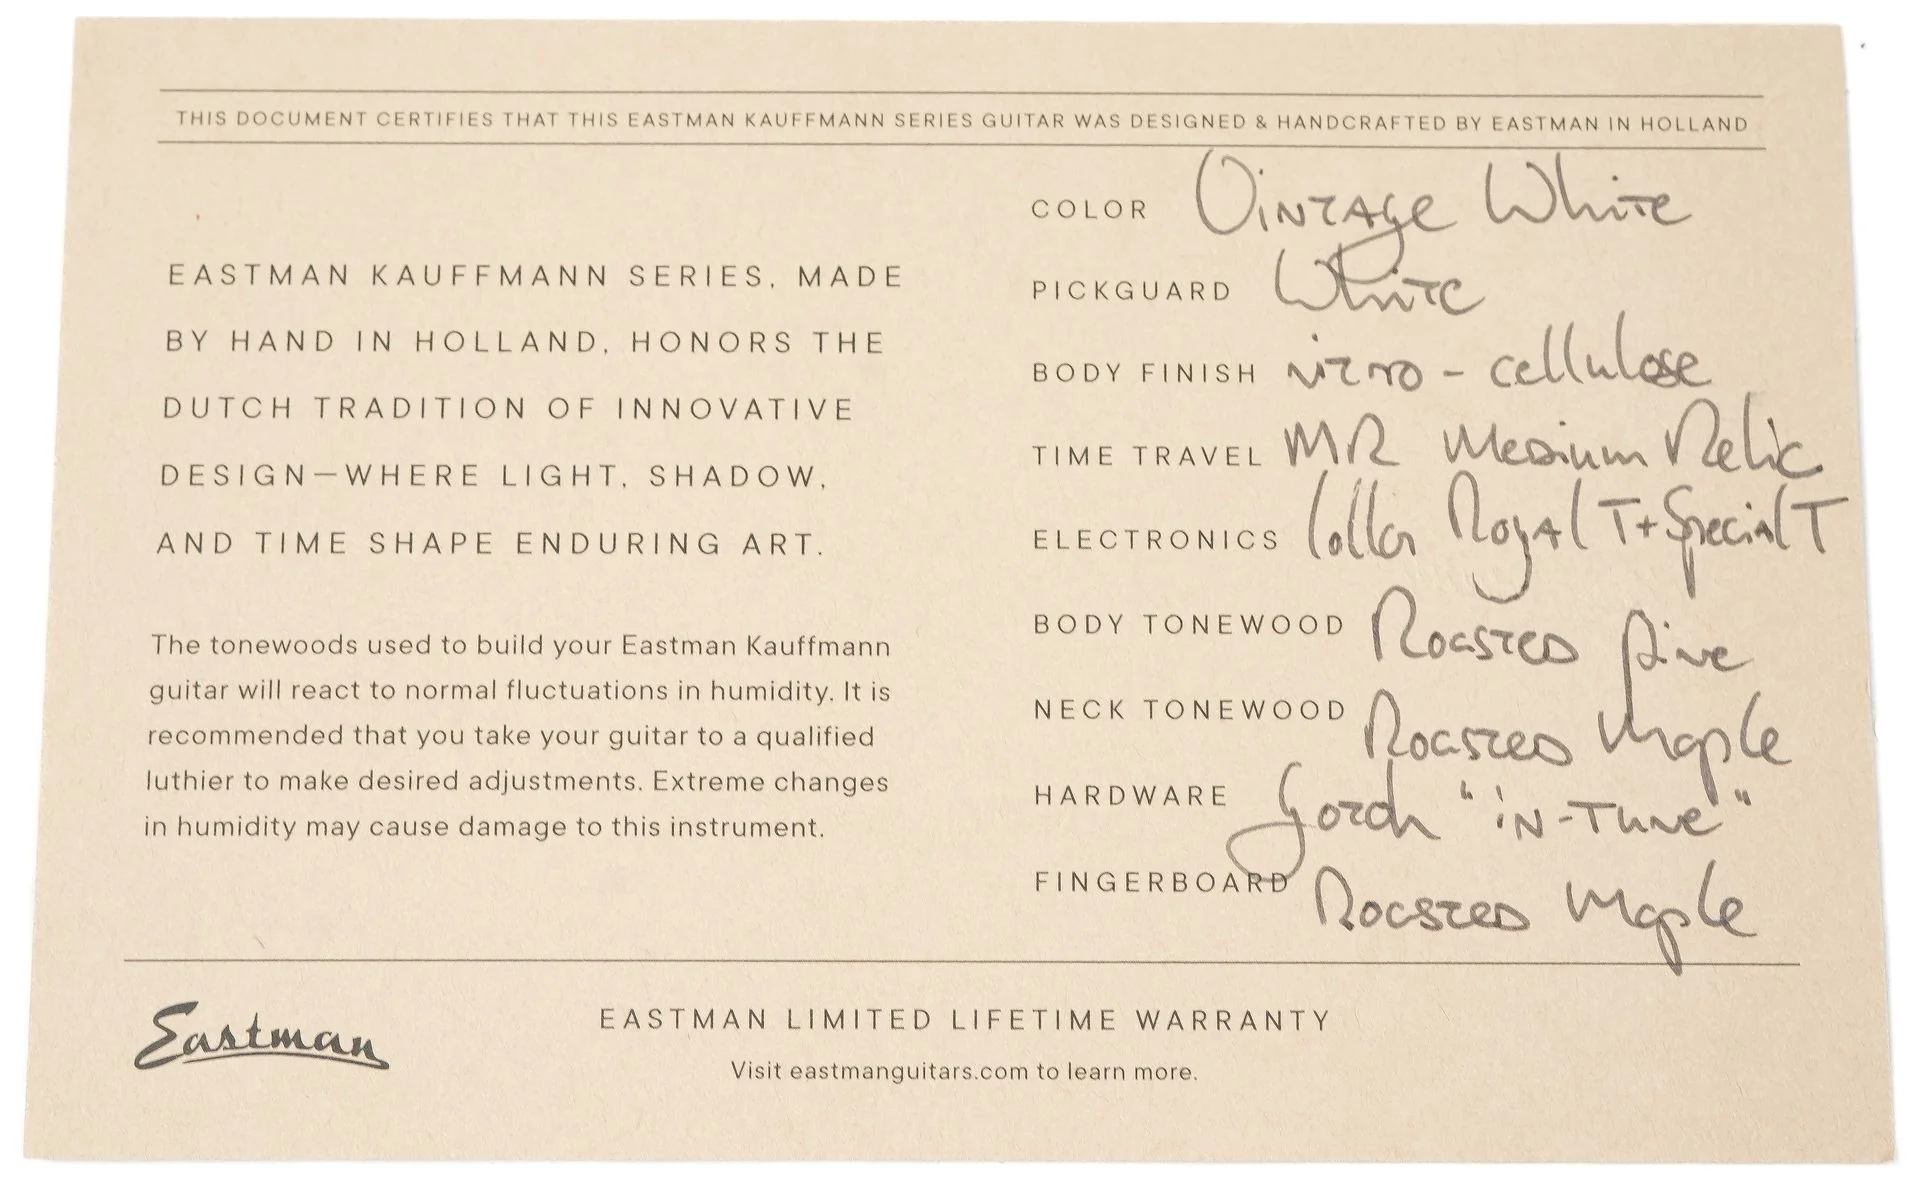 THIS DOCUMENT CERTIFIES THAT THIS EASTMAN KAUFFMANN SERIES GUITAR WAS DESIGNED & HANDCRAFTED BY EASTMAN IN HOLLAND
EASTMAN KAUFFMANN SERIES, MADE
BY HAND IN HOLLAND, HONORS THE
DUTCH TRADITION OF INNOVATIVE
DESIGN—WHERE LIGHT, SHADOW,
AND TIME SHAPE ENDURING ART.
The tonewoods used to build your Eastman Kauffmann
guitar will react to normal fluctuations in humidity. It is
recommended that you take your guitar to a qualified
luthier to make desired adjustments. Extreme changes
in humidity may cause damage to this instrument.
COLOR Vintage White
PICKGUARD White
BODY FINISH nitro - cellulose
TIME TRAVEL MR Medium Relic
ELECTRONICS lollar Royal T + Special T
BODY TONEWOOD Roasted Pine
NECK TONEWOOD Roasted Maple
HARDWARE Gotoh "in-Tune"
FINGERBOARD Roasted Maple
Eastman
EASTMAN LIMITED LIFETIME WARRANTY
Visit eastmanguitars.com to learn more.